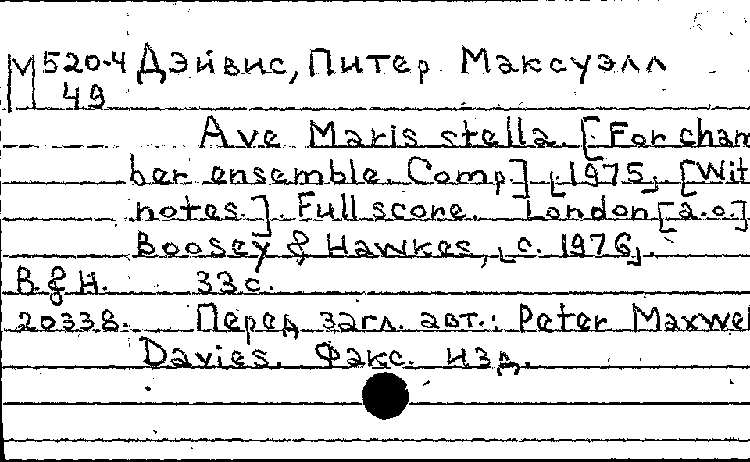 М 520-4 Дэйвис, Питер Максуэлл
49
Ave Maris stella. [For cham
ber ensemble. Comp.] ⌊1975⌋. [Wit
notes.]. Full score. London [a.o.]
Boosey & Hawkes, ⌊c. 1976⌋.
B.&H. 33 с.
20338. Перед загл. авт.: Peter Maxwel
Davies. Факс. изд.